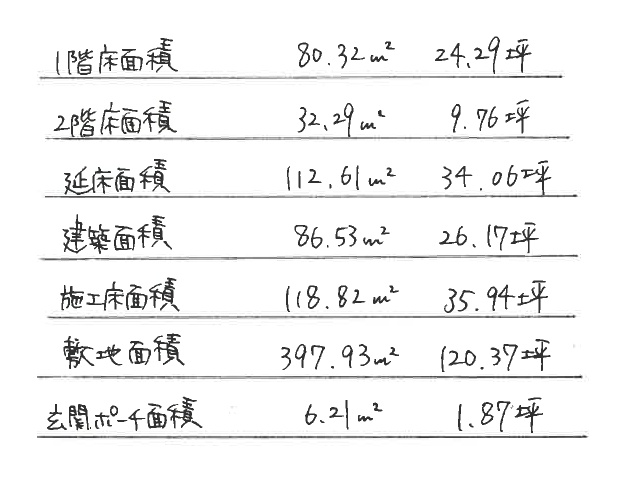 1階床面積 80.32m² 24.29坪
2階床面積 32.29m² 9.76坪
延床面積 112.61m² 34.06坪
建築面積 86.53m² 26.17坪
施工床面積 118.82m² 35.94坪
敷地面積 397.93m² 120.37坪
玄関ポーチ面積 6.21m² 1.87坪